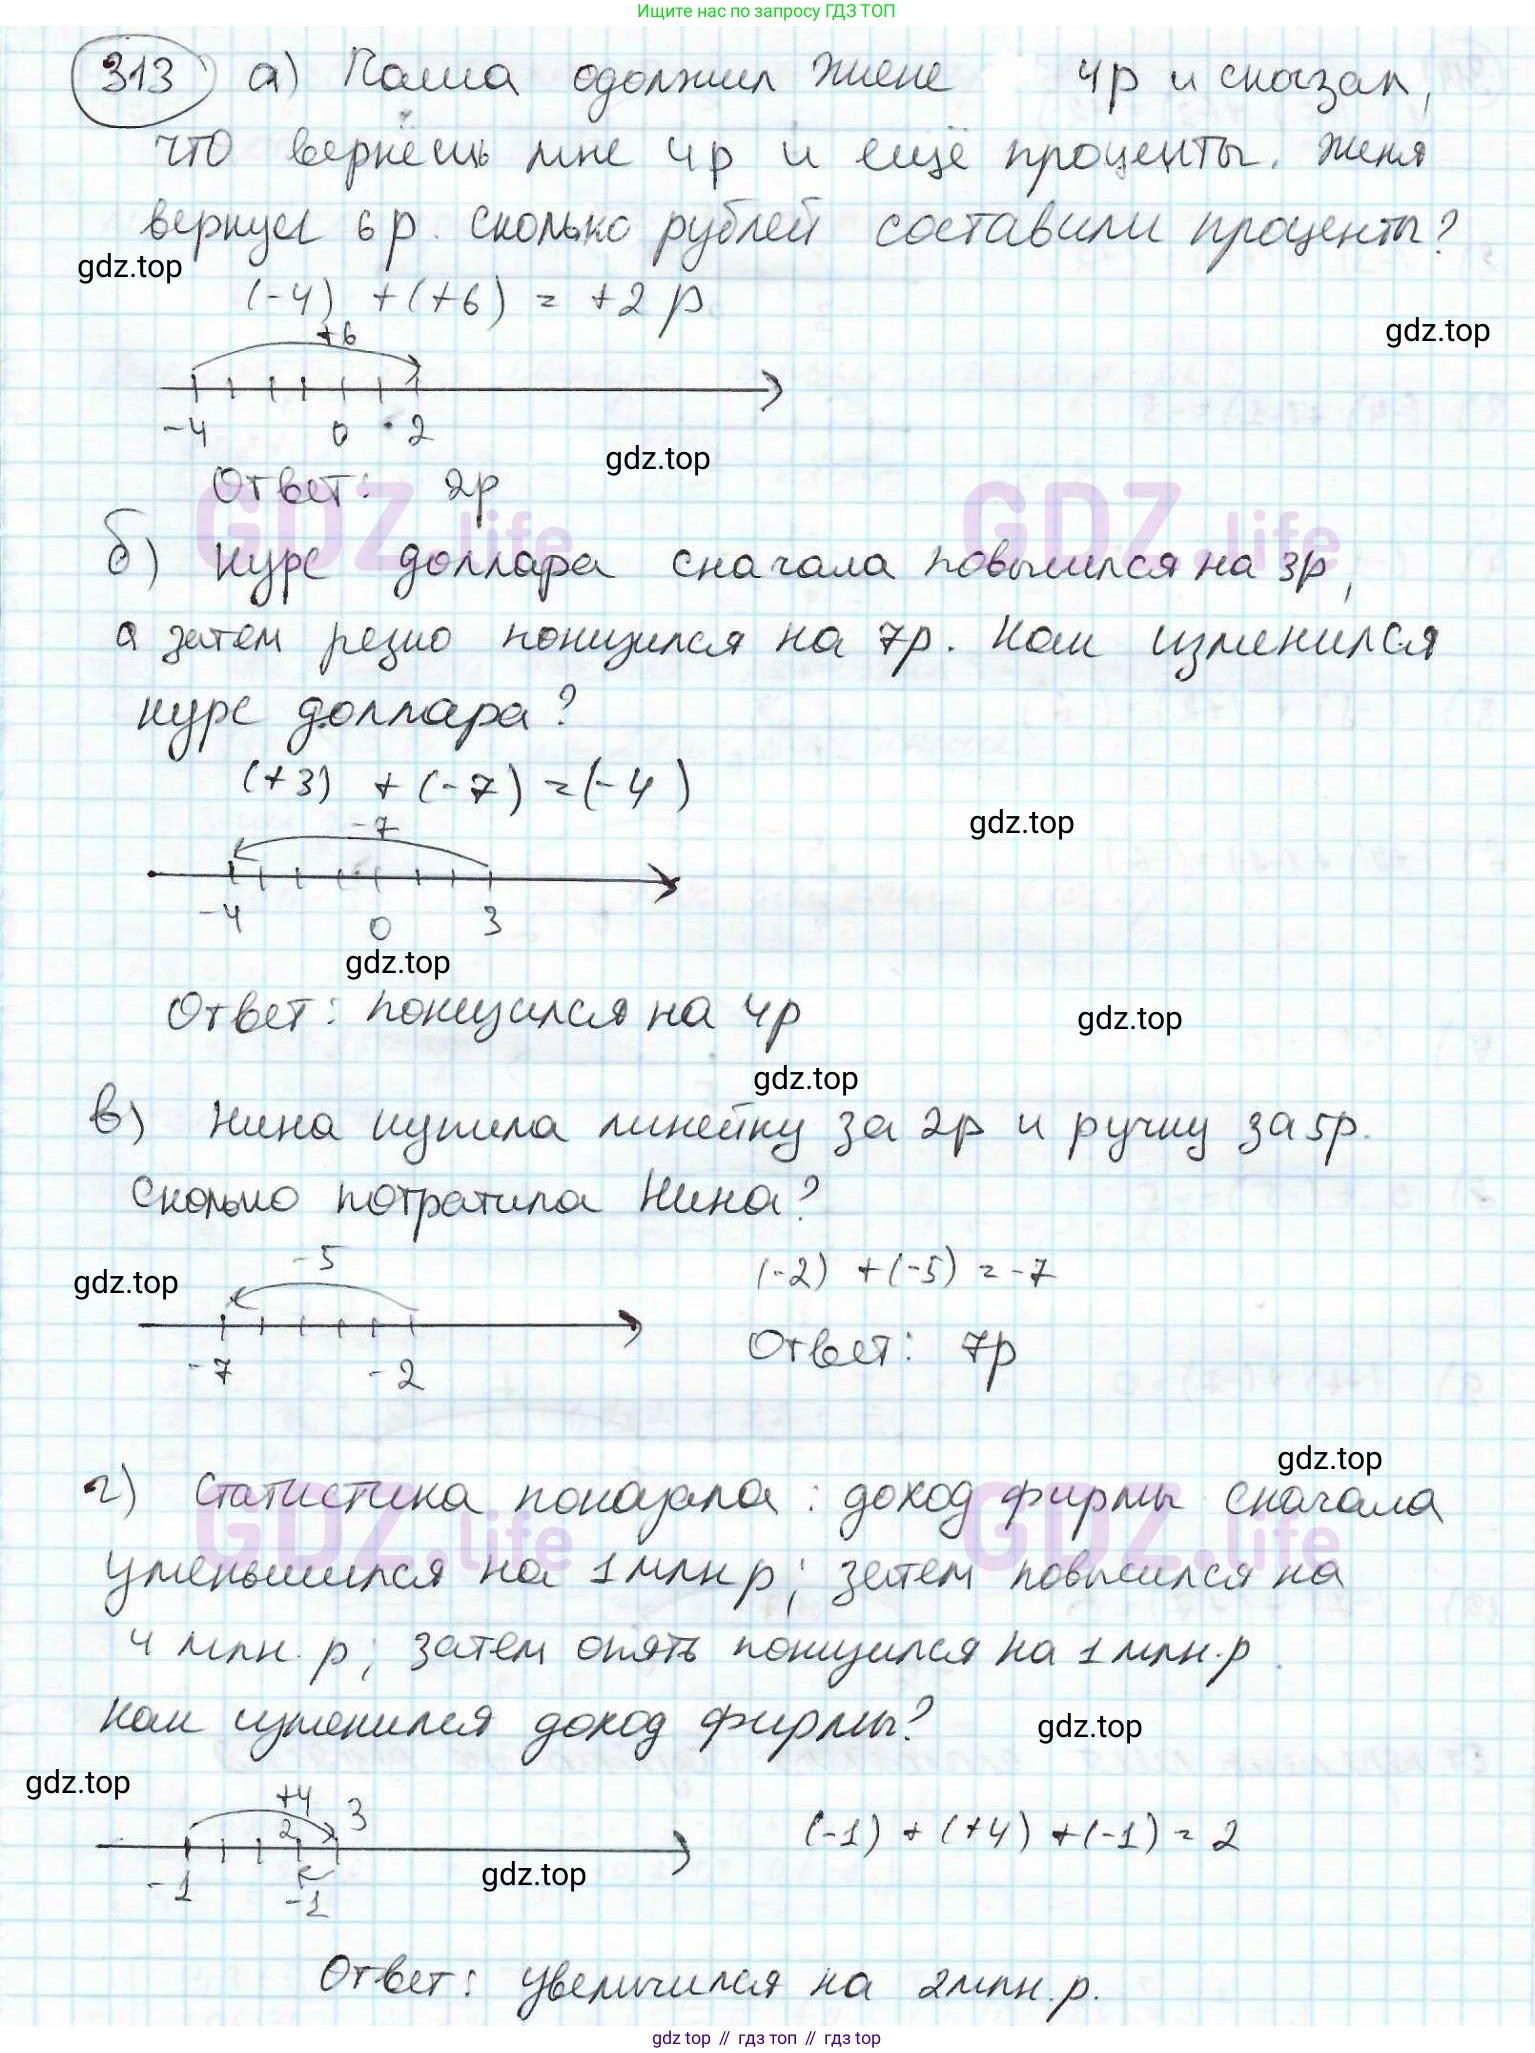 Ищите нас по запросу ГДЗ ТОП
313 а) Паша одолжил Жене 4р и сказал,
что вернёшь мне 4р и ещё проценты. Женя
вернул 6р. Сколько рублей составили проценты?
gdz.top
(-4) +(+6) = +2 р
gdz.top
+6
-4 0 2
gdz.top
Ответ: 2р
GDZ.life GDZ.life
б) Курс доллара сначала повысился на 3р,
а затем резко понизился на 7р. Как изменился
курс доллара?
(+3) +(-7) =(-4)
gdz.top
-7
-4 0 3
gdz.top
Ответ: понизился на 4р
gdz.top
gdz.top
в) Нина купила линейку за 2р и ручку за 5р.
Сколько потратила Нина?
-5
(-2) +(-5) = -7
gdz.top
-7 -2
Ответ: 7р
gdz.top
г) Статистика показала: доход фирмы сначала
GDZ.life GDZ.life
уменьшился на 1 млн р; затем повысился на
4 млн. р; затем опять понизился на 1 млн.р.
Как изменился доход фирмы?
gdz.top
gdz.top
+4 3
2
(-1) + (+4) +(-1) = 2
gdz.top
-1 -1
Ответ: увеличился на 2 млн.р.
gdz top // гдз топ // гдз top